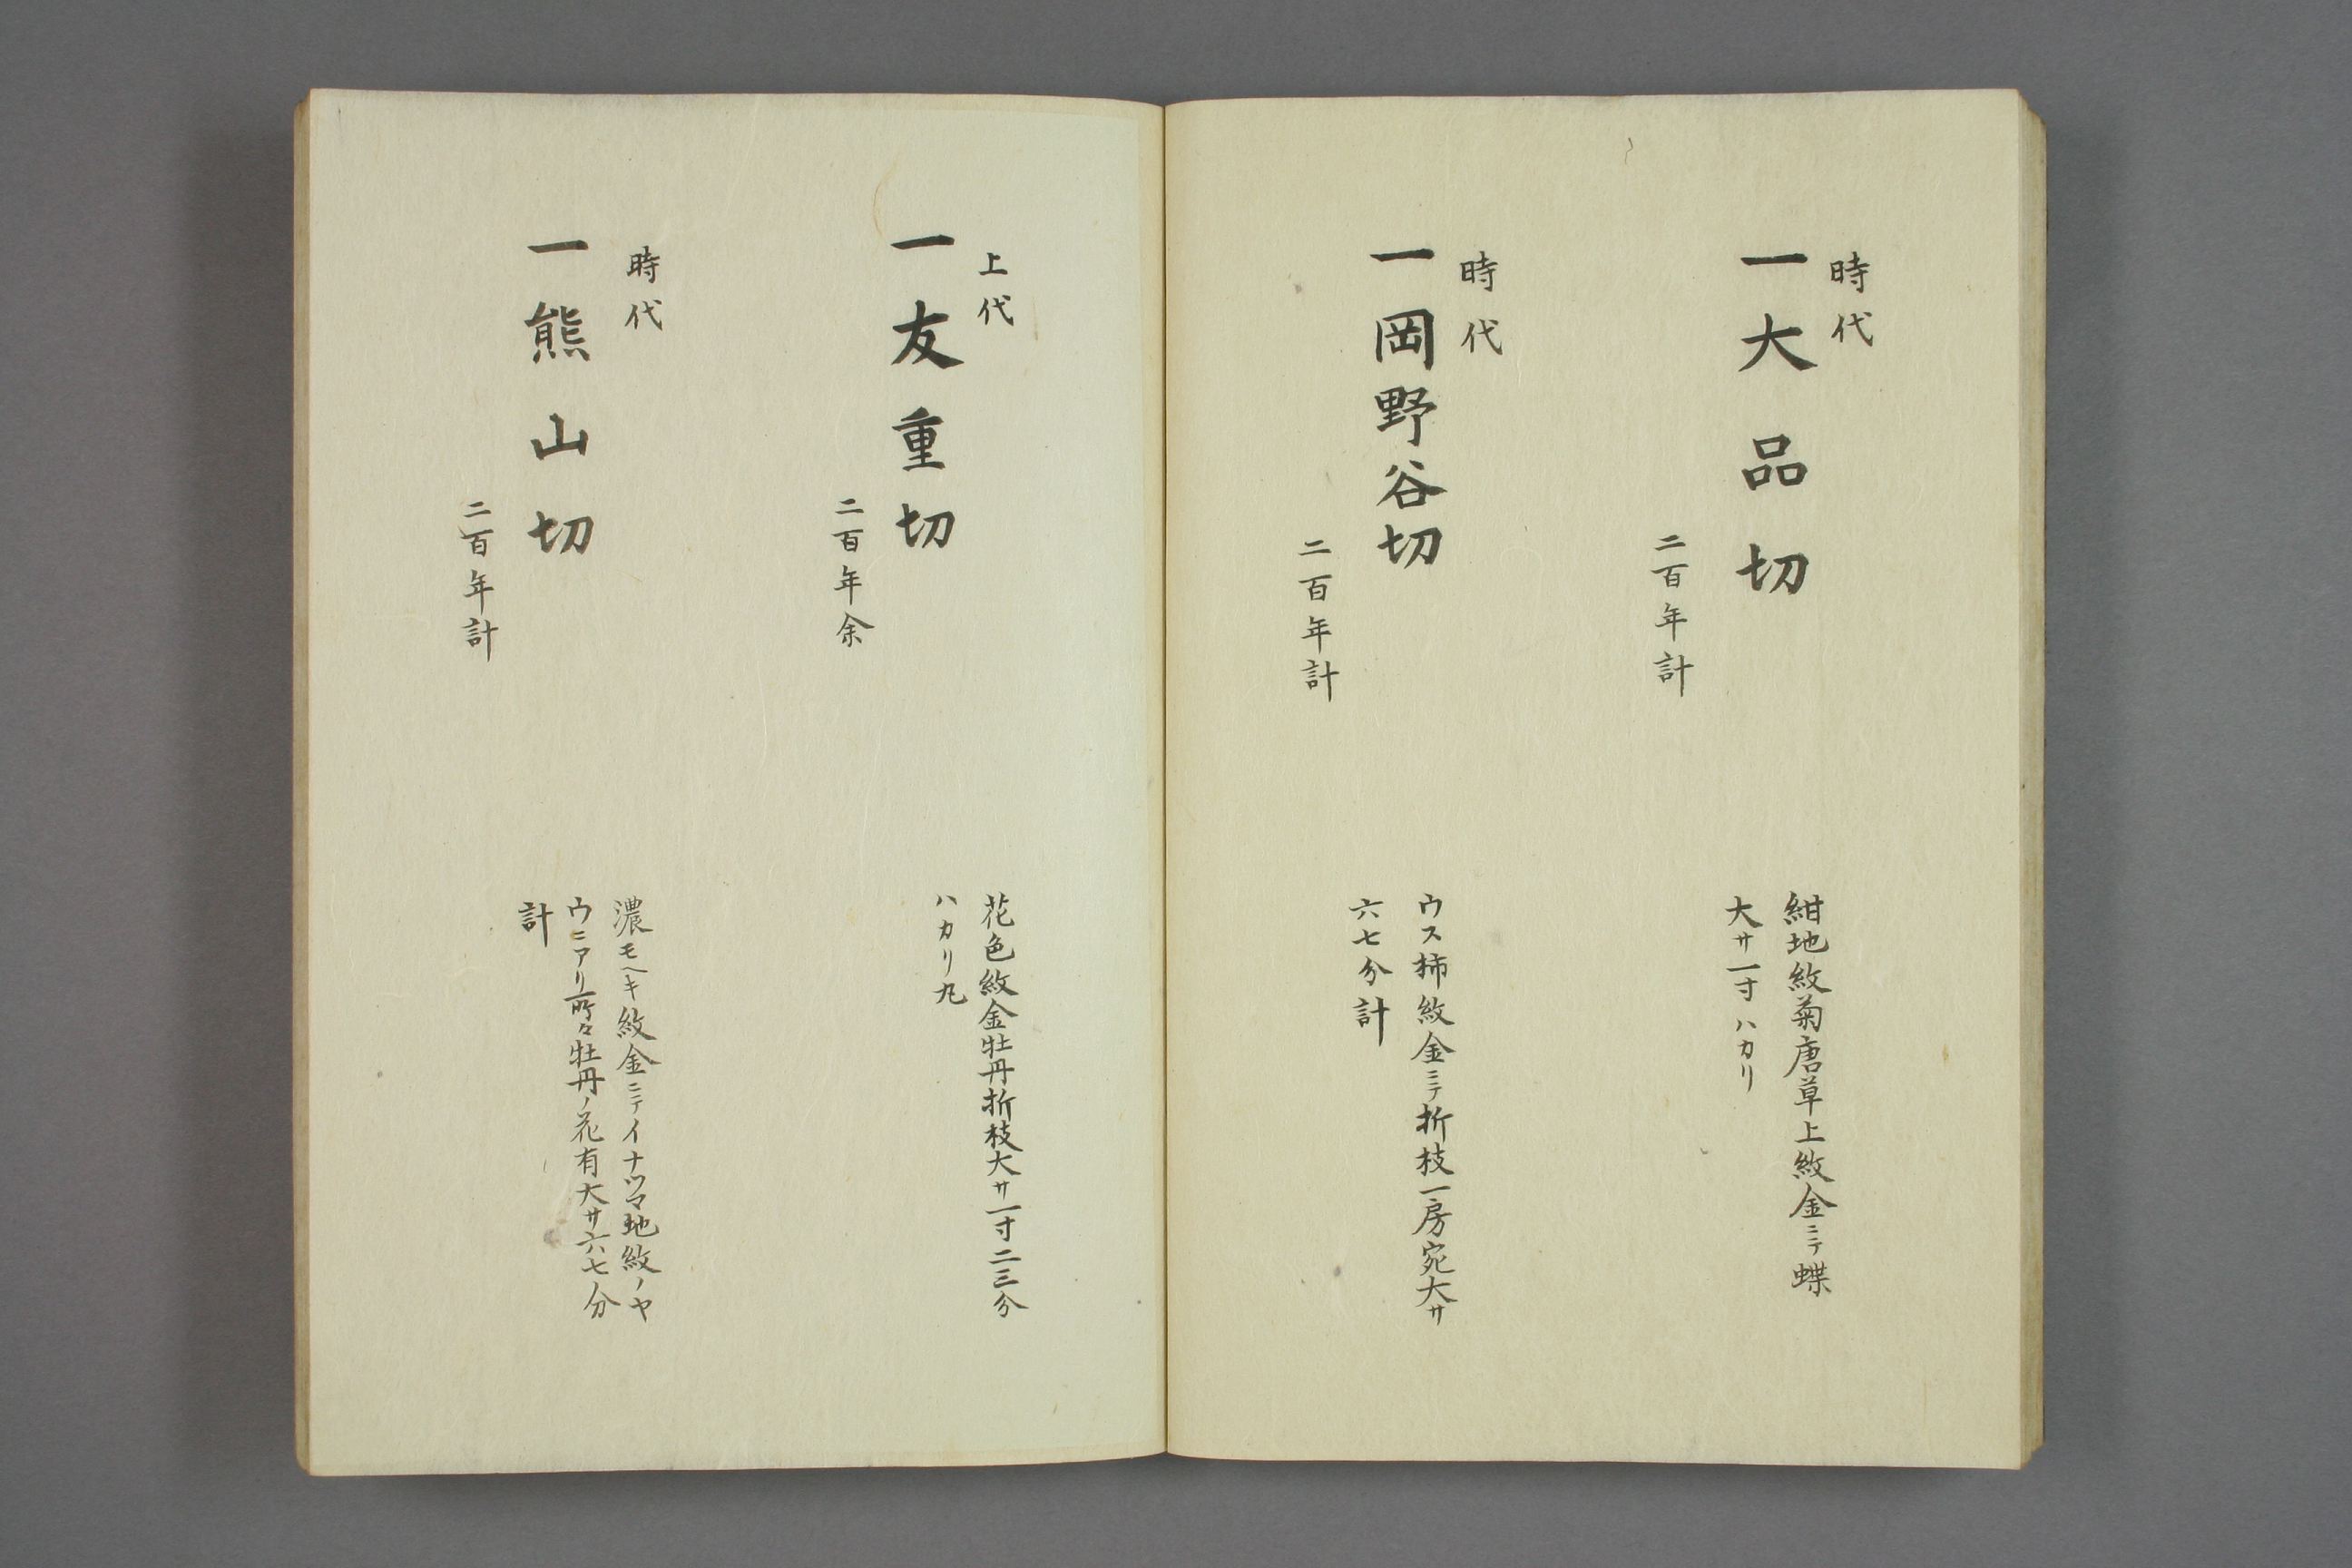 時代
一大品切
二百年計
紺地紋菊唐草上紋金ニテ蝶
大サ一寸ハカリ
時代
一岡野谷切
二百年計
ウス柿紋金ニテ折枝一房宛大サ
六七分計
上代
一友重切
二百年余
花色紋金牡丹折枝大サ一寸二三分
ハカリ九
時代
一熊山切
二百年計
濃モヘキ紋金ニテイナツマ地紋ノヤ
ウニアリ所々牡丹ノ花有大サ六七分
計